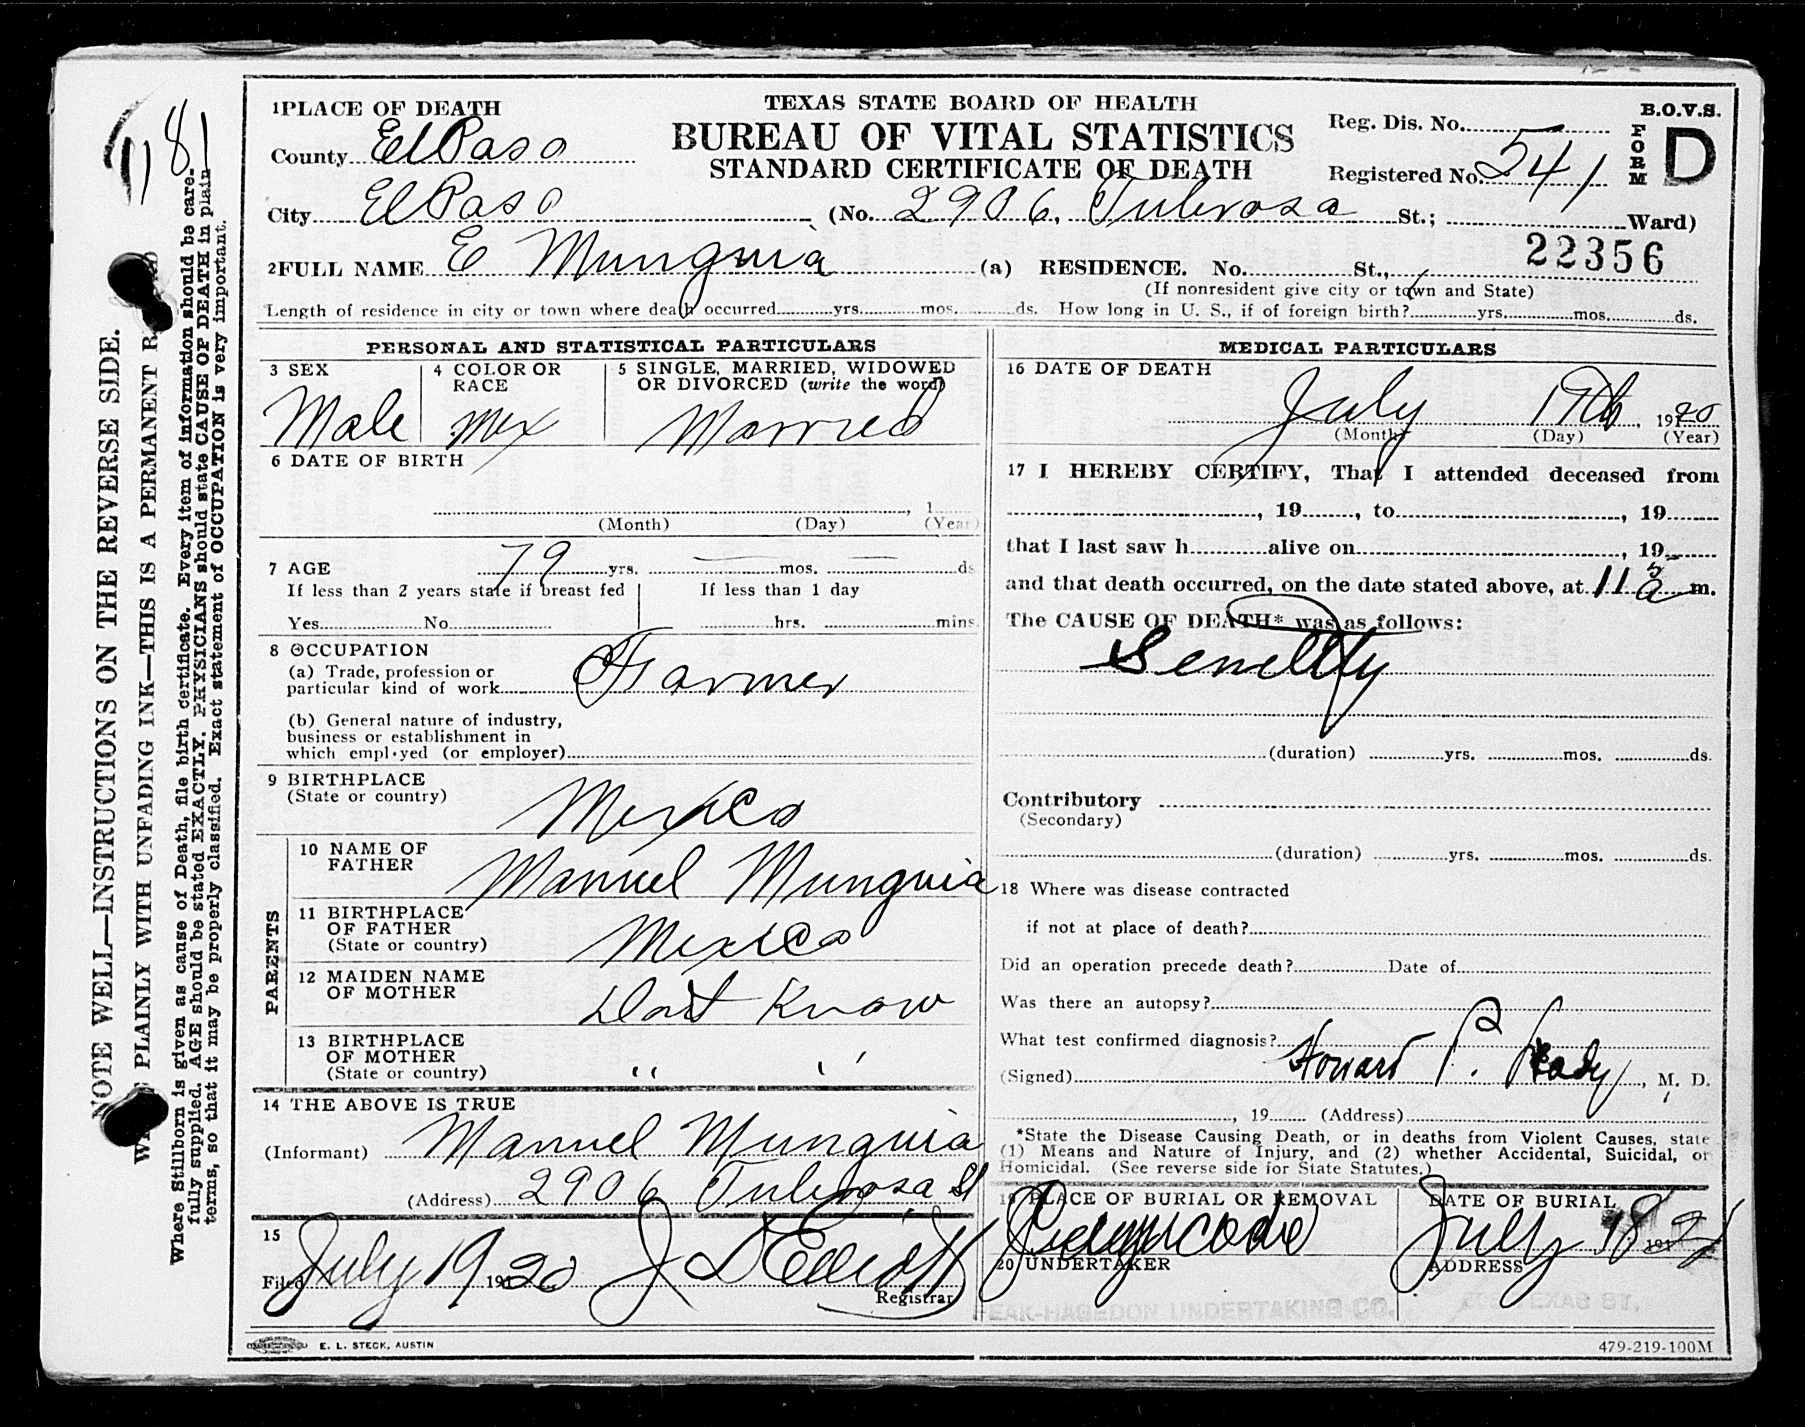 1181
NOTE WELL—INSTRUCTIONS ON THE REVERSE SIDE.
PLAINLY WITH UNFADING INK—THIS IS A PERMANENT
Where Stillborn is given as cause of Death, file birth certificate. Every item of information should be care-
fully supplied. AGE should be stated EXACTLY. PHYSICIANS should state CAUSE OF DEATH in plain
terms, so that it may be properly classified. Exact statement of OCCUPATION is very important.
TEXAS STATE BOARD OF HEALTH
BUREAU OF VITAL STATISTICS
STANDARD CERTIFICATE OF DEATH
B.O.V.S.
FORM D
1 PLACE OF DEATH
County El Paso
Reg. Dis. No.
Registered No. 541
City El Paso (No. 2906, Tulerosa St.; Ward)
22356
2 FULL NAME E Munguia (a) RESIDENCE. No. St.,
(If nonresident give city or town and State)
Length of residence in city or town where death occurred yrs. mos. ds. How long in U. S., if of foreign birth? yrs. mos. ds.
PERSONAL AND STATISTICAL PARTICULARS
3 SEX
Male
4 COLOR OR RACE
Mex
5 SINGLE, MARRIED, WIDOWED
OR DIVORCED (write the word)
Married
6 DATE OF BIRTH
, 1
(Month) (Day) (Year)
7 AGE 79 yrs. — mos. — ds
If less than 2 years state if breast fed
Yes No
If less than 1 day
hrs. mins.
8 OCCUPATION
(a) Trade, profession or
particular kind of work Farmer
(b) General nature of industry,
business or establishment in
which empl·yed (or employer)
9 BIRTHPLACE
(State or country) Mexico
PARENTS
10 NAME OF
FATHER Manuel Munguia
11 BIRTHPLACE
OF FATHER
(State or country) Mexico
12 MAIDEN NAME
OF MOTHER Dont Know
13 BIRTHPLACE
OF MOTHER
(State or country) " "
14 THE ABOVE IS TRUE
(Informant) Manuel Munguia
(Address) 2906 Tulerosa St
15
Filed July 19 1920 J D Elliott
Registrar
MEDICAL PARTICULARS
16 DATE OF DEATH
July 19th, 1920
(Month) (Day) (Year)
17 I HEREBY CERTIFY, That I attended deceased from
, 19 , to , 19
that I last saw h alive on , 19
and that death occurred, on the date stated above, at 11 5 a m.
The CAUSE OF DEATH* was as follows:
Senility
(duration) yrs. mos. ds.
Contributory
(Secondary)
(duration) yrs. mos. ds.
18 Where was disease contracted
if not at place of death?
Did an operation precede death? Date of
Was there an autopsy?
What test confirmed diagnosis?
(Signed) Howard P. , M. D.
, 19 (Address)
*State the Disease Causing Death, or in deaths from Violent Causes, state
(1) Means and Nature of Injury, and (2) whether Accidental, Suicidal, or
Homicidal. (See reverse side for State Statutes.)
19 PLACE OF BURIAL OR REMOVAL
DATE OF BURIAL
July
20 UNDERTAKER
ADDRESS
PEAK-HAGEDON UNDERTAKING CO.
TEXAS ST.
E. L. STECK, AUSTIN
479-219-100M